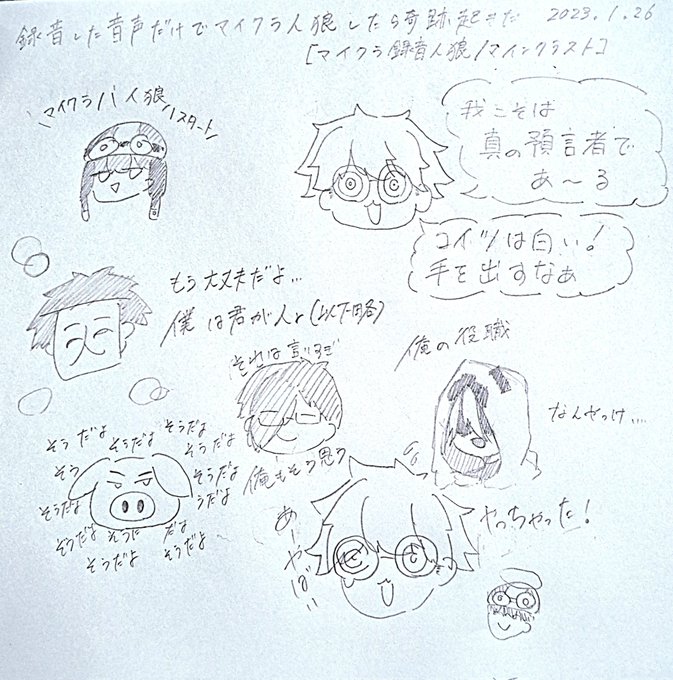 録音した音声だけでマイクラ人狼したら奇跡起きた 2023.1.26
[マイクラ録音人狼/マインクラフト]
マイクラ人狼
スタート
我こそは
真の預言者で
あ〜る
コイツは白い!
手を出すなぁ
もう大丈夫だよ...
僕は君が人と(以下略)
それは言いすぎ
俺もそう思う
俺の役職
なんやっけ...
そうだよ
そうだよ
そうだよ
そうだよ
そう
そうだよ
そうだよ
うだよ
そうだよ
そうだ
だよ
そうだよ
そうだよ
あーやばい
やっちゃった!